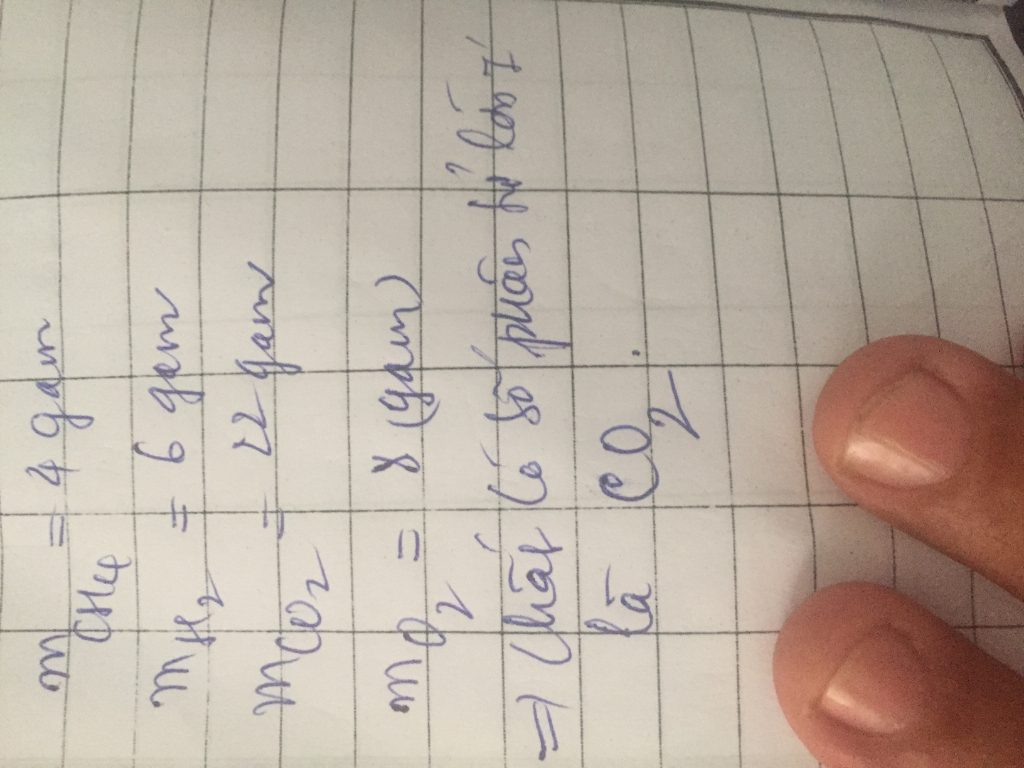 mCH4 = 4 gam
mH2 = 6 gam
mCO2 = 22 gam
mO2 = 8 (gam)
=> Chất có số phân tử lớn 1
là CO2.